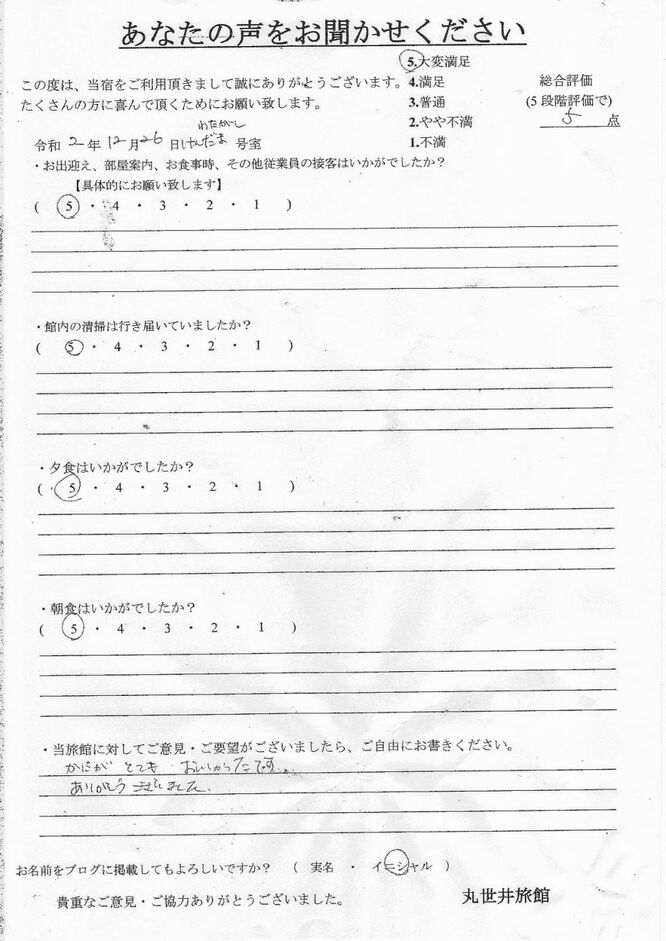 あなたの声をお聞かせください
この度は、当宿をご利用頂きまして誠にありがとうございます。
たくさんの方に喜んで頂くためにお願い致します。
5.大変満足
4.満足
3.普通
2.やや不満
1.不満
総合評価
(5段階評価で)
5 点
令和 2 年 12 月 26 日 けんだま 号室
・お出迎え、部屋案内、お食事時、その他従業員の接客はいかがでしたか?
【具体的にお願い致します】
( 5 ・ 4 ・ 3 ・ 2 ・ 1 )
・館内の清掃は行き届いていましたか?
( 5 ・ 4 ・ 3 ・ 2 ・ 1 )
・夕食はいかがでしたか?
( 5 ・ 4 ・ 3 ・ 2 ・ 1 )
・朝食はいかがでしたか?
( 5 ・ 4 ・ 3 ・ 2 ・ 1 )
・当旅館に対してご意見・ご要望がございましたら、ご自由にお書きください。
かにが とても おいしかったです。
ありがとうございました。
お名前をブログに掲載してもよろしいですか? ( 実名 ・ イニシャル )
貴重なご意見・ご協力ありがとうございました。
丸世井旅館